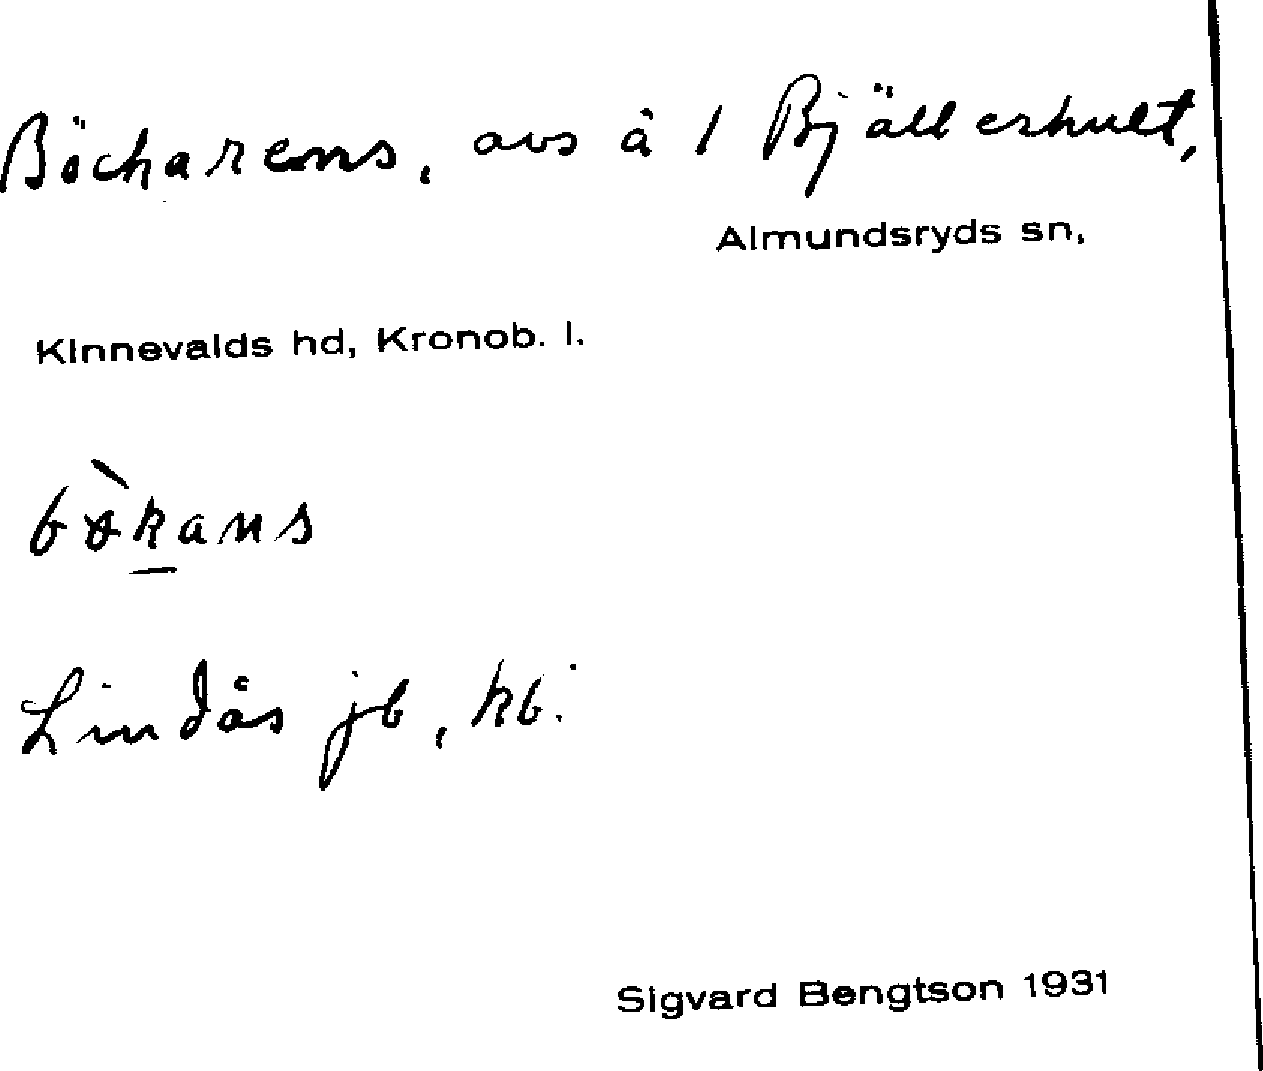 Böckarens, avs å 1 Bjällerhult,
Almundsryds sn,
Kinnevalds hd, Kronob. l.
bø̀kans
Lindås jb, kb.
Sigvard Bengtson 1931